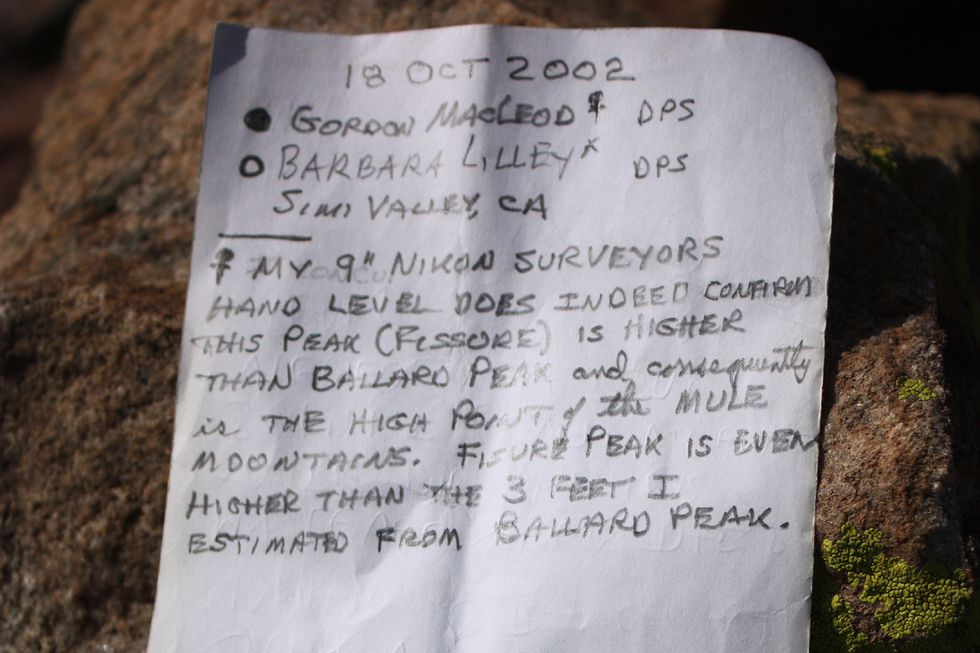 18 OCT 2002
● GORDON MACLEOD † DPS
○ BARBARA LILLEY x DPS
SIMI VALLEY, CA
† MY 9" NIKON SURVEYORS
HAND LEVEL DOES INDEED CONFIRM
THIS PEAK (FISSURE) IS HIGHER
THAN BALLARD PEAK and consequently
is THE HIGH POINT of the MULE
MOUNTAINS. FISURE PEAK IS EVEN
HIGHER THAN THE 3 FEET I
ESTIMATED FROM BALLARD PEAK.